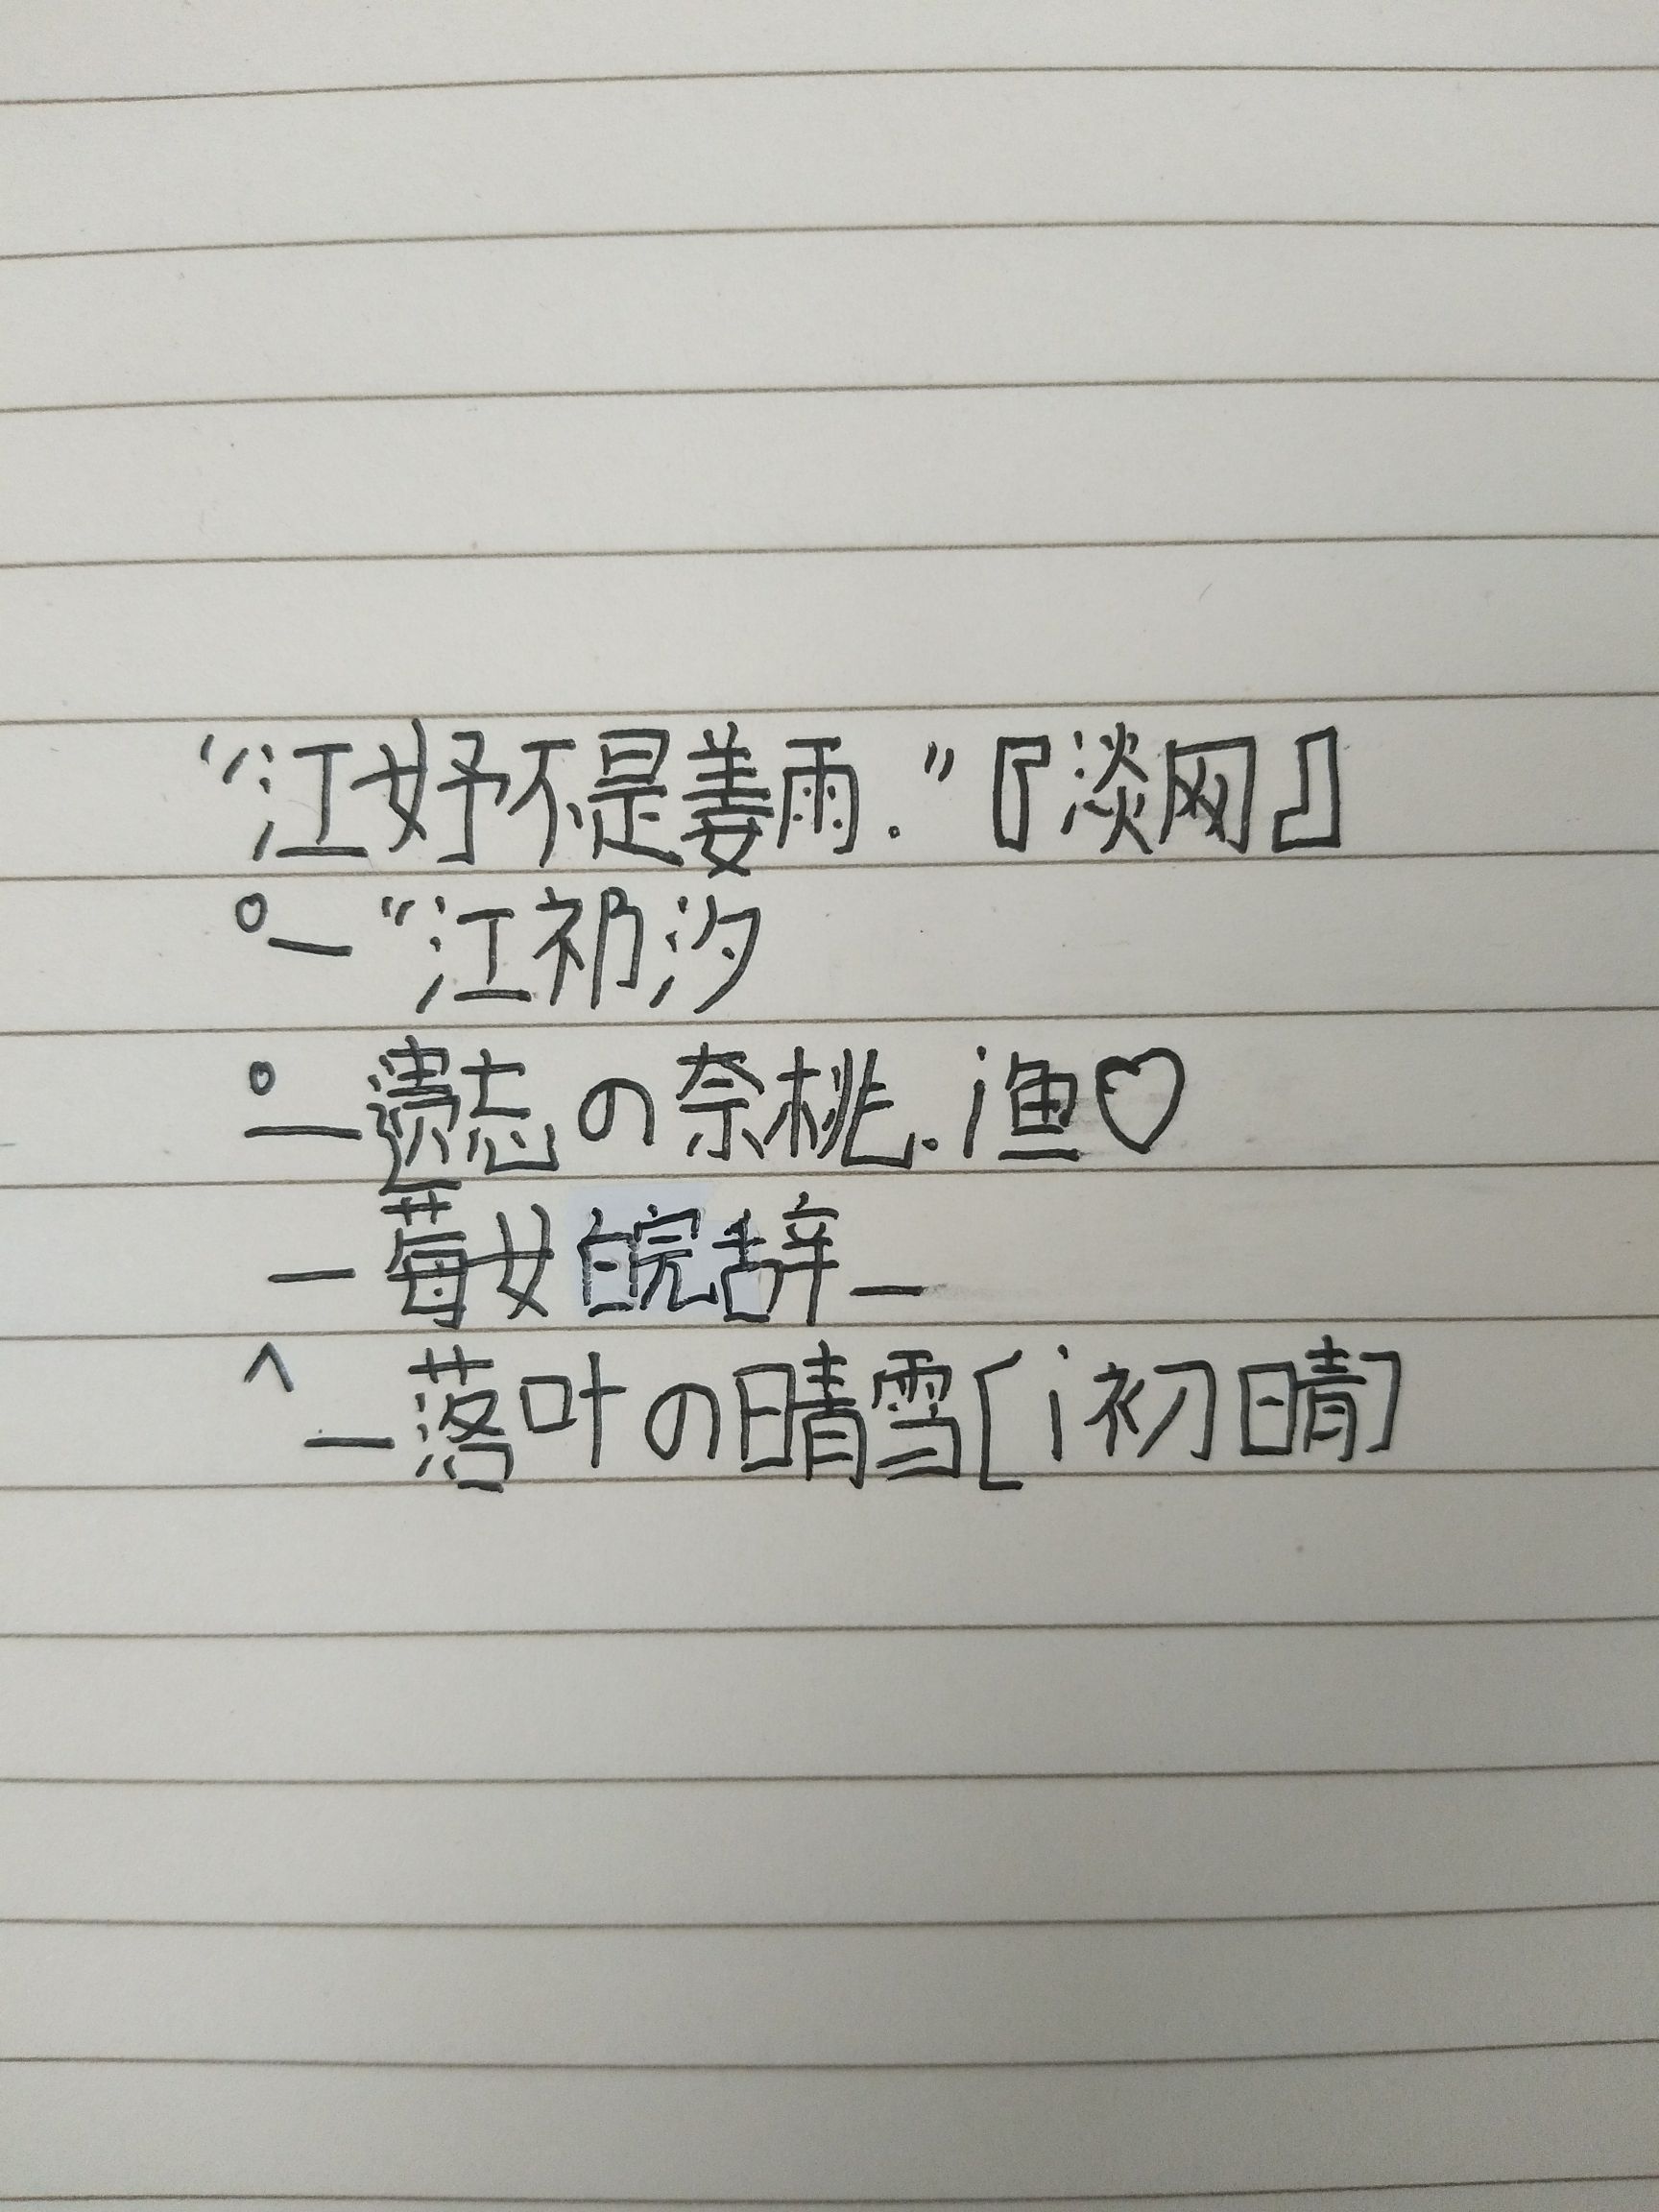 “江妤不是姜雨.”『淡网』
°— “江祁汐
°—遗忘の奈桃.i渔♡
—莓女皖辞—
^—落叶の晴雪[i初晴]